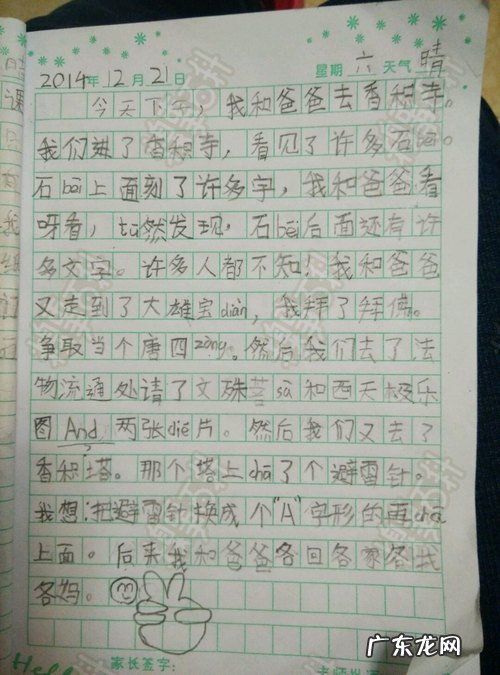 2014年12月21日 星期 六 天气 晴
今天下午，我和爸爸去香积寺。
我们进了香积寺，看见了许多石bēi。
石bēi上面刻了许多字，我和爸爸看
呀看，tū然发现，石bēi后面还有许
多文字。许多人都不知！我和爸爸
又走到了大雄宝diàn，我拜了拜佛。
争取当个唐四zàng。然后我们去了法
物流通处请了文殊菩sà和西天极乐
图And两张dié片。然后我们又去了
香积塔。那个塔上chā了个避雷针。
我想：把避雷针换成个"A"字形的再chā
上面。后来我和爸爸各回各家各找
各妈。
家长签字：
Hello
广东龙网